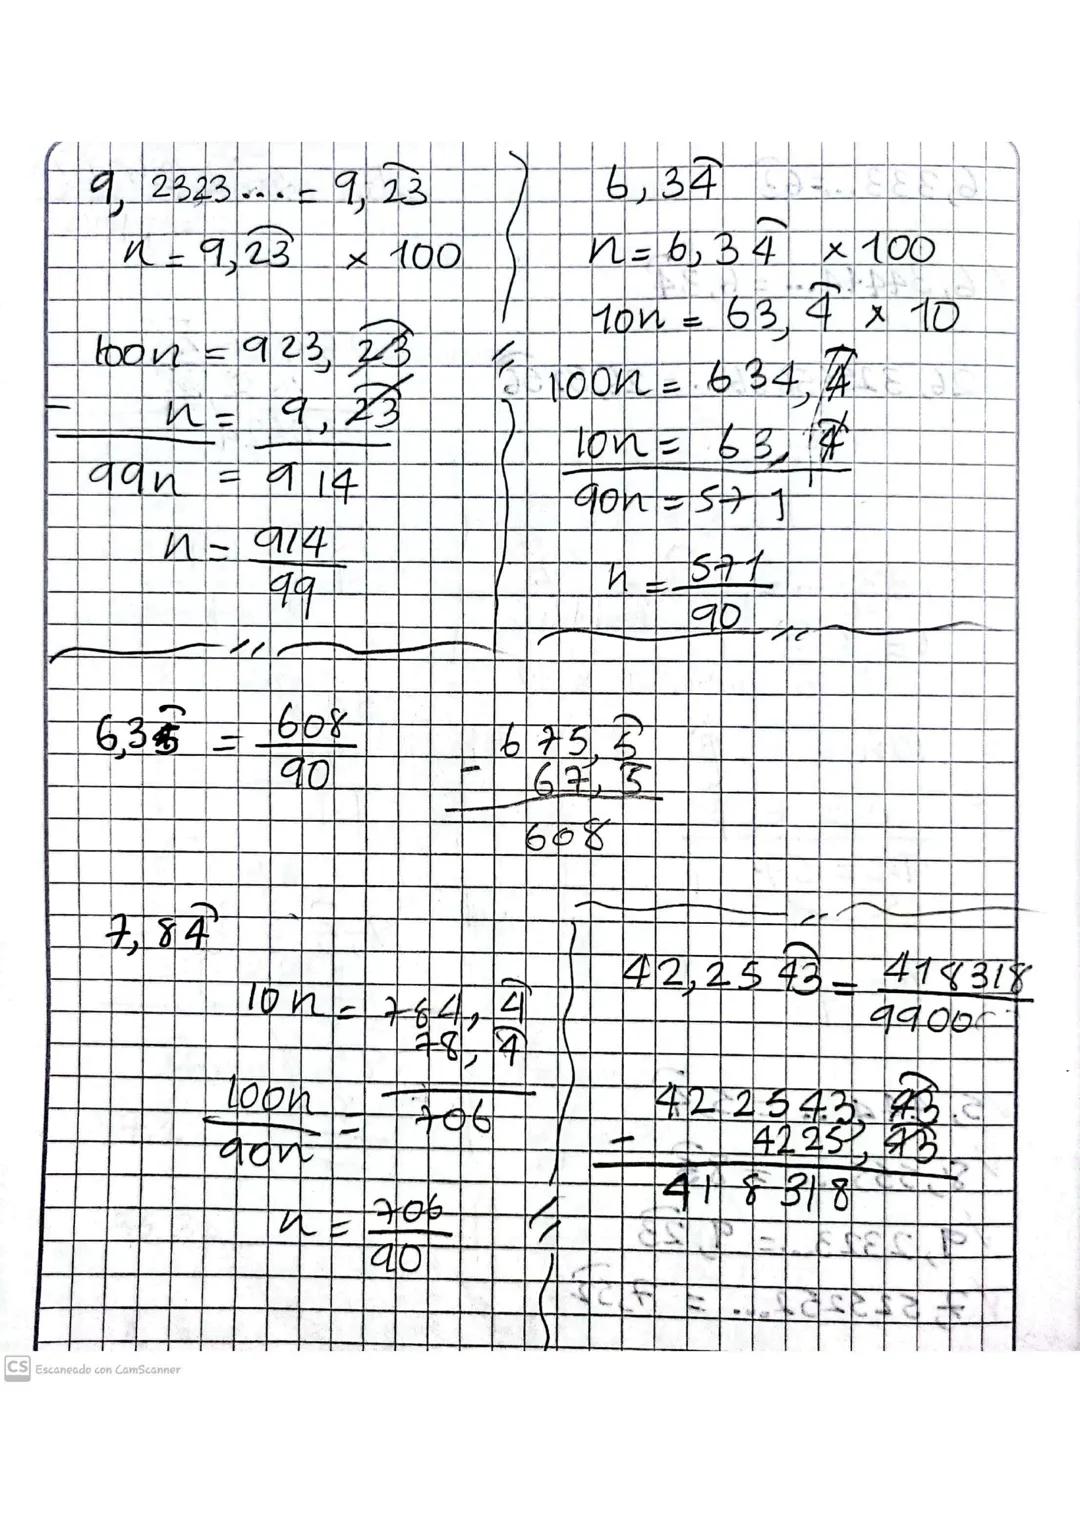 9, 2323... = 9,2͡3
n = 9,2͡3 × 100
100n = 923, 2͡3
- n = 9, 2͡3
99n = 914
n = 914
99
6,34͡
n = 6,34͡ × 100
10n = 63, 4͡ × 10
100n = 634, 4͡
10n = 63, 4͡
90n = 571
n = 571
90
6,35͡ = 608
90
675, 5͡
- 67, 5͡
608
7,84͡
10n = 784, 4͡
78, 4͡
100n = 706
90n
n = 706
90
42,254͡3 = 418318
9900
422543, 4͡3
- 4225, 4͡3
418318
9,2323... = 9,2͡3
7,525252... = 7,5͡2
CS Escaneado con CamScanner